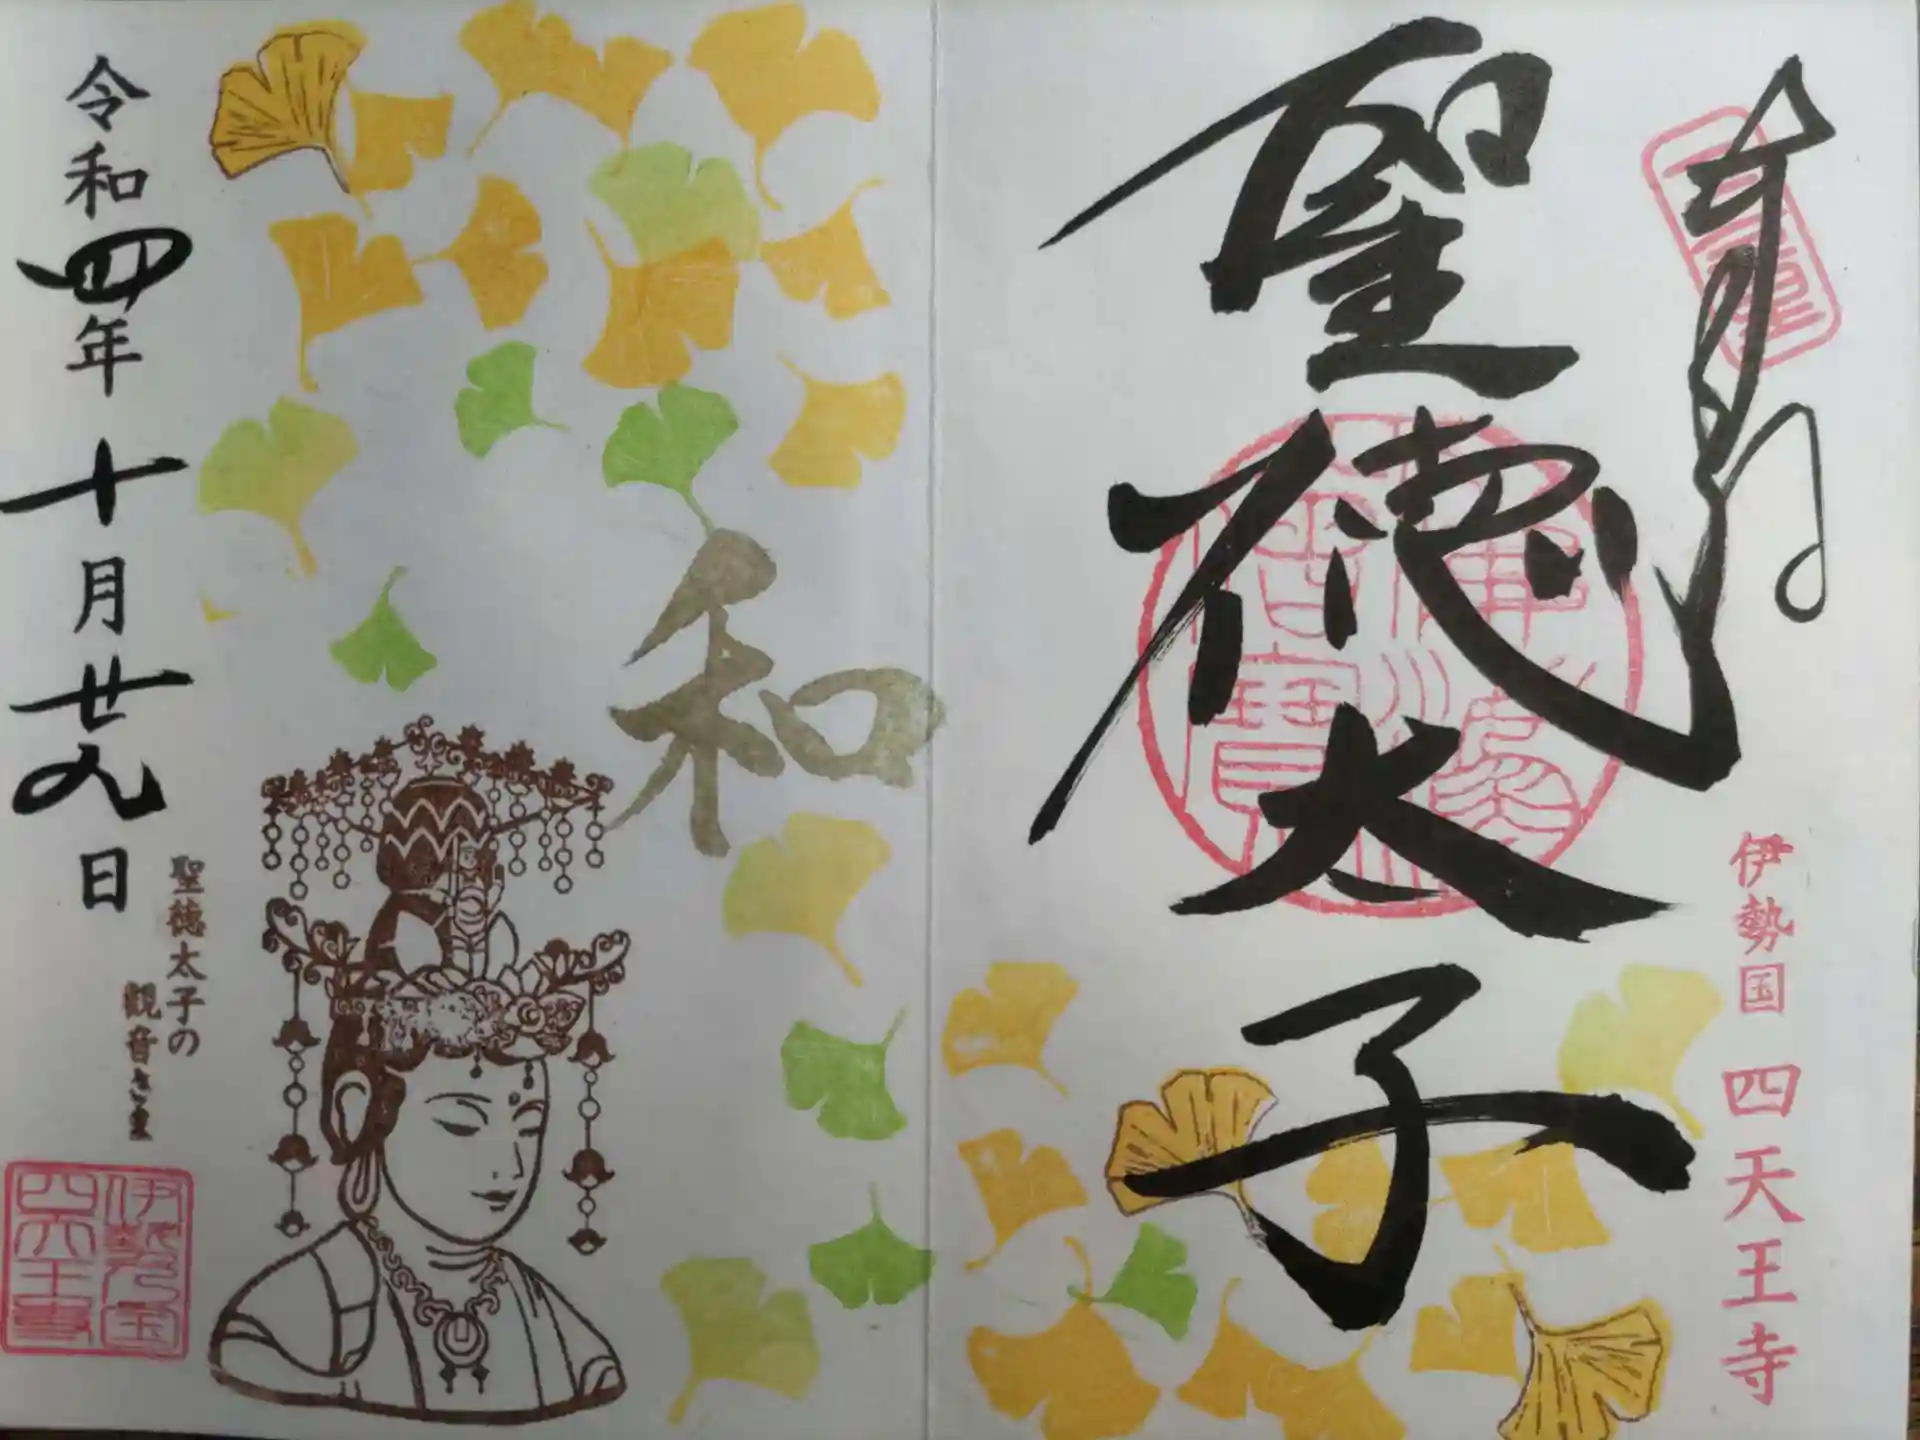 奉拝
聖徳太子
伊勢国 四天王寺
和
聖徳太子の
観音さま
令和四年十月廿九日
伊勢国
四天王寺